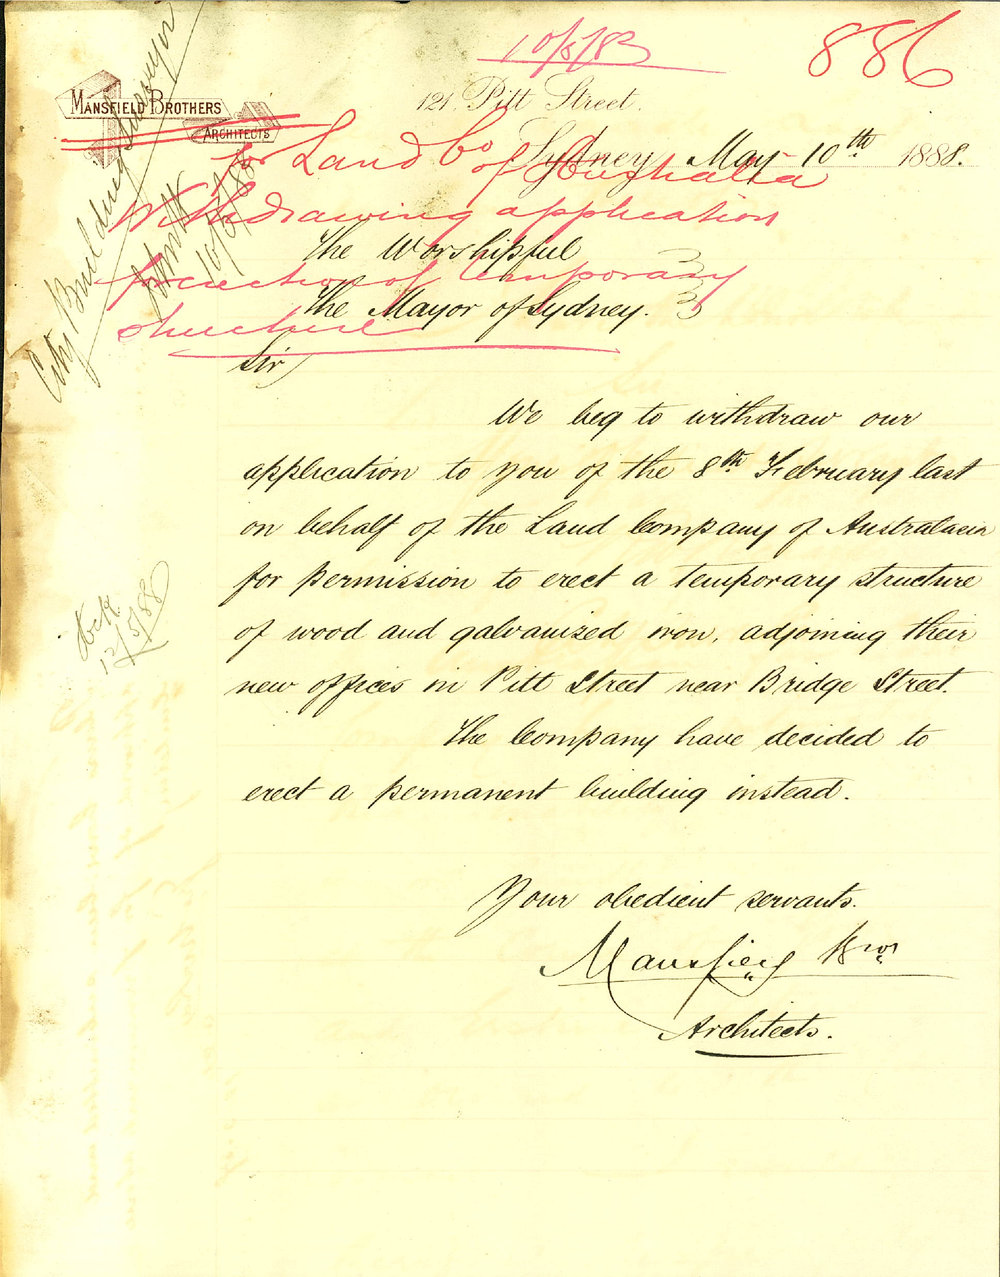 10/5/88
886
MANSFIELD BROTHERS
ARCHITECTS
121, Pitt Street.
Sydney, May 10th 1888.
for Land Co of Australia
Withdrawing application
for erection of temporary
structure
City Building Surveyor
10/5/88
The Worshipful
The Mayor of Sydney.
Sir,
We beg to withdraw our
application to you of the 8th February last
on behalf of the Land Company of Australasia
for permission to erect a temporary structure
of wood and galvanized iron, adjoining their
new offices in Pitt Street near Bridge Street.
The Company have decided to
erect a permanent building instead.
12/5/88
Your obedient servants.
Mansfield Bros
Architects.